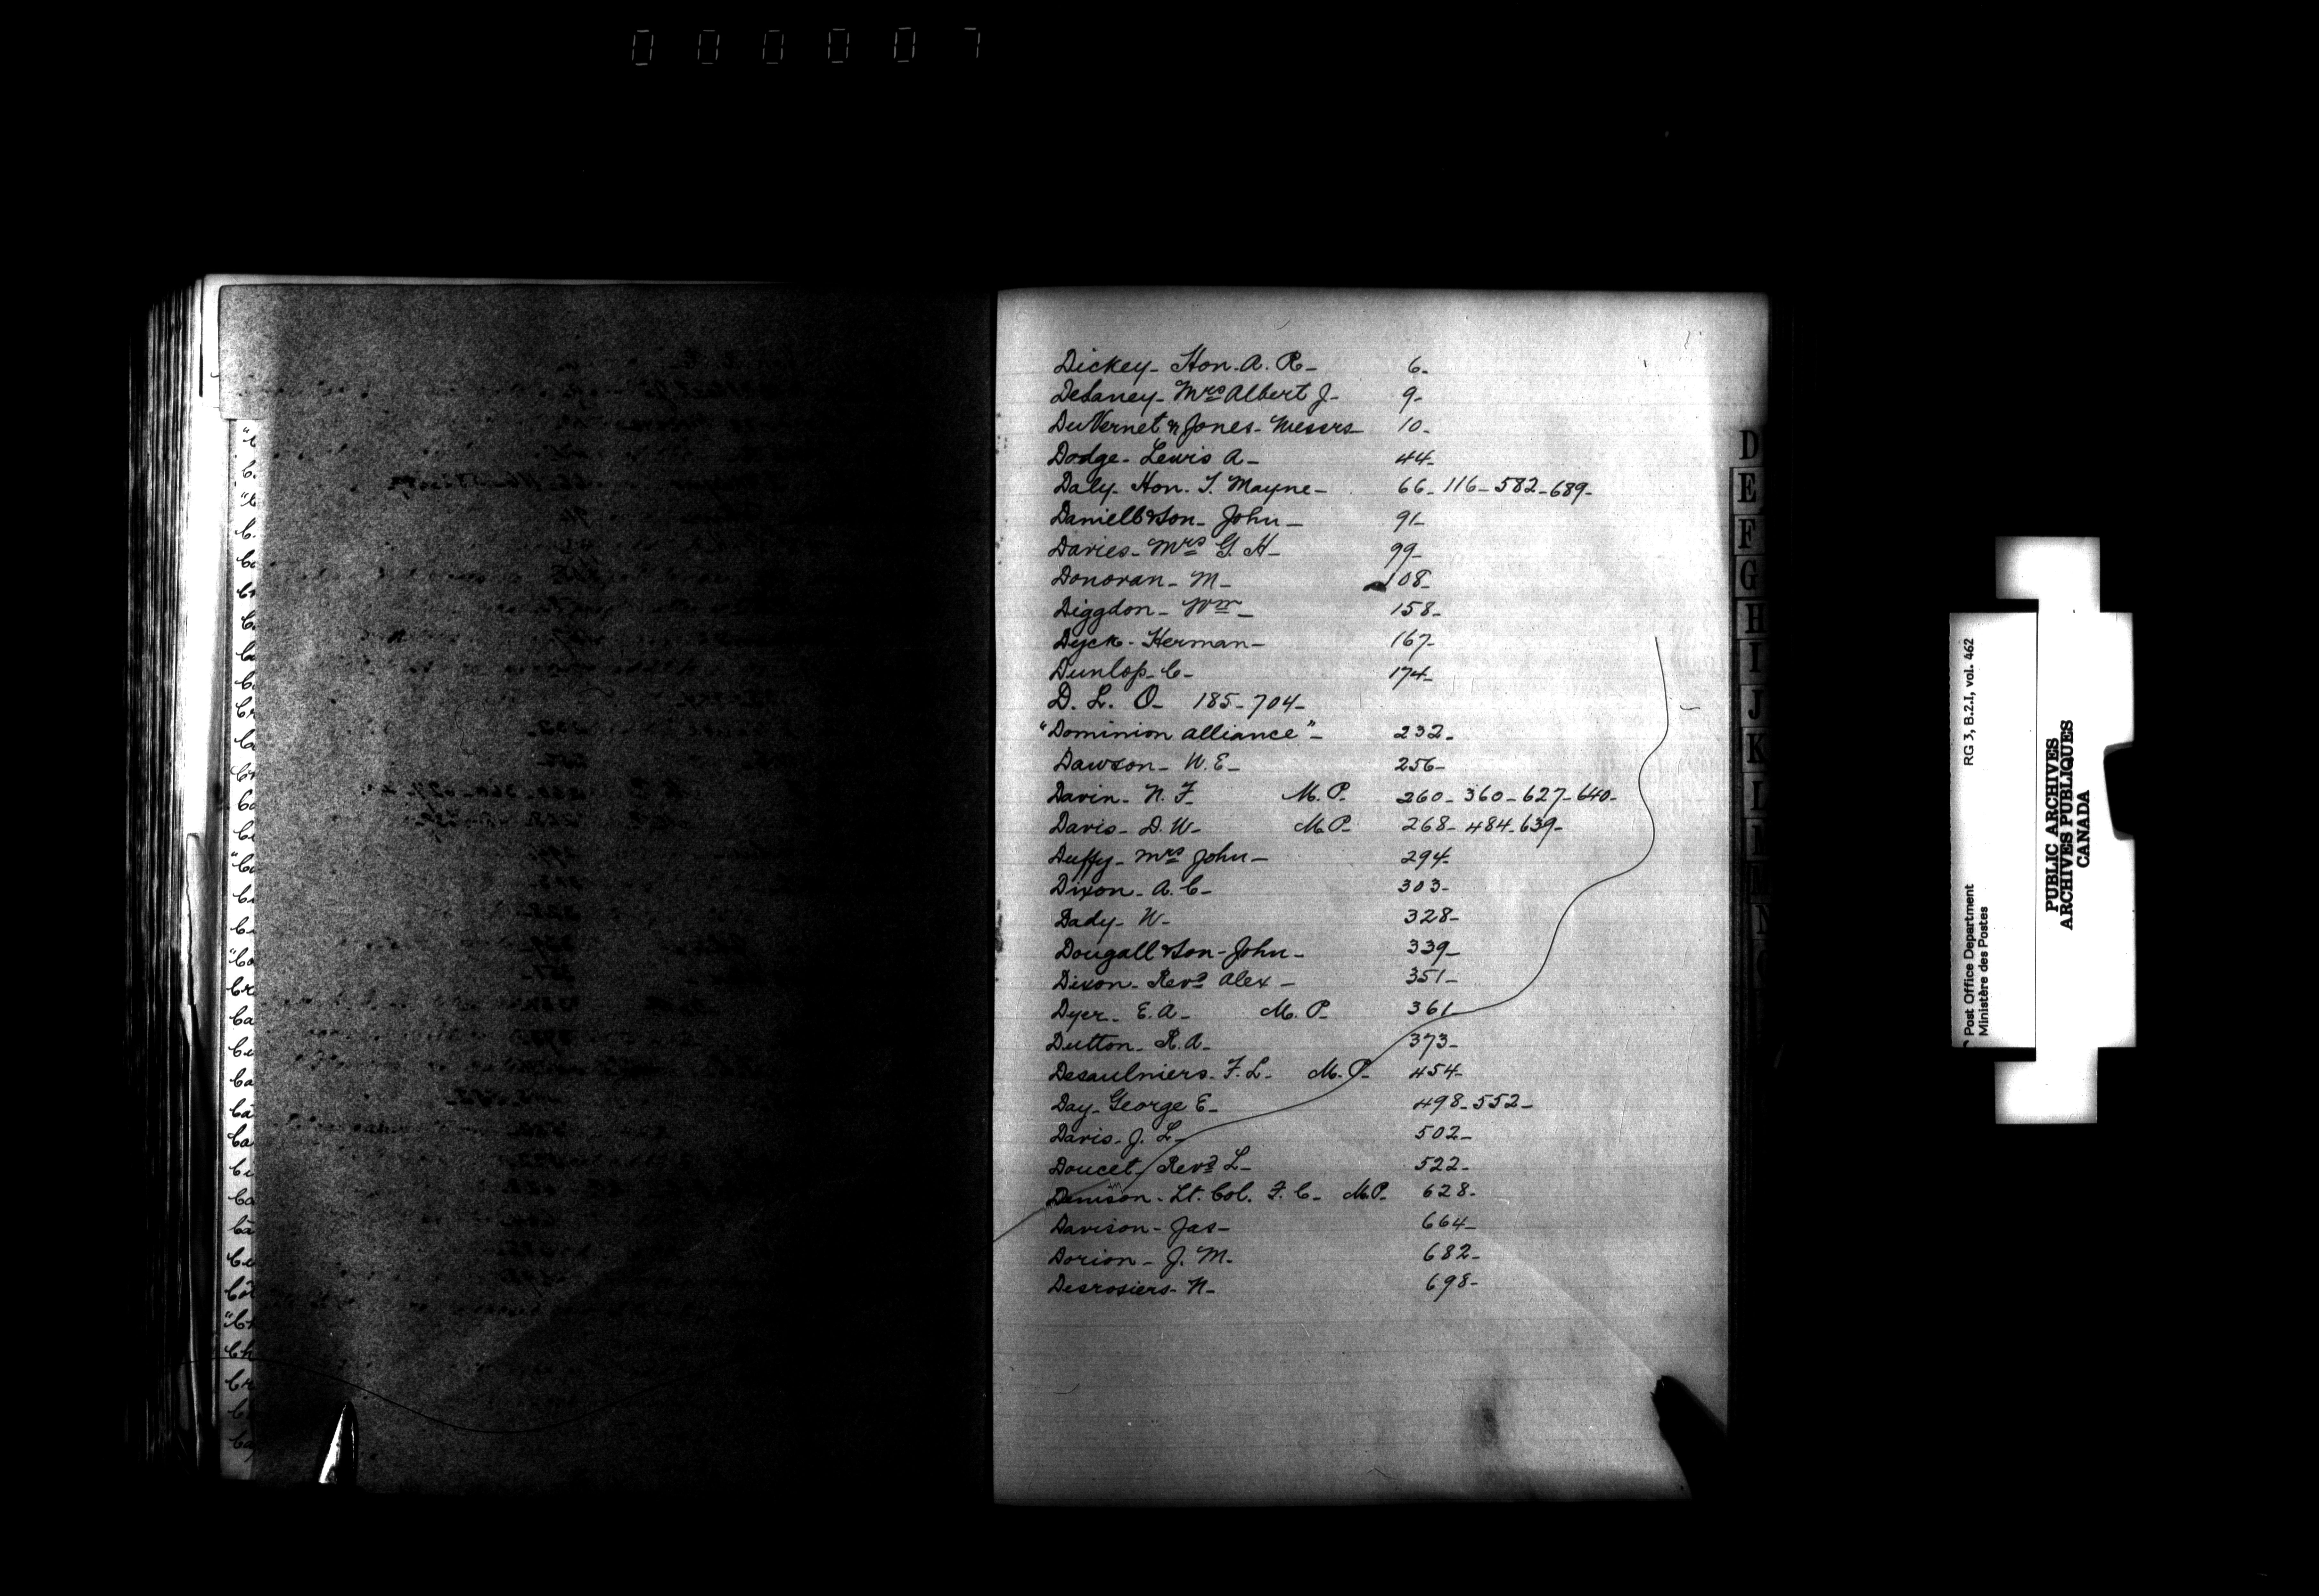 000007
Dickey- Hon. A. R- 6-
Delaney- Mrs Albert J- 9-
DuVernet & Jones- Messrs 10-
Dodge- Lewis A- 44-
Daly- Hon. T. Mayne- 66- 116- 582-689-
Daniell & Son- John- 91-
Davies- Mrs G. H- 99-
Donovan- M- 108-
Diggdon- Wm- 158-
Dyck- Herman- 167-
Dunlop- C- 174-
D. L. O- 185-704-
"Dominion alliance"- 232-
Dawson- W. E- 256-
Davin- N. F- M. P- 260- 360- 627- 640-
Davis- D. W- M. P- 268- 484- 639-
Duffy- Mrs John- 294-
Dixon- A. C- 303-
Dady- W- 328-
Dougall & Son- John- 339-
Dixon- Revd Alex- 351-
Dyer- E. A- M. P- 361-
Dutton- R. A- 373-
Desaulniers- F. L- M. P- 454-
Day- George E- 498- 552-
Davis- J. L- 502-
Doucet- Revd L- 522-
Denison- Lt. Col. F. C- M. P- 628-
Davison- Jas- 664-
Dorion- J. M. 682-
Desrosiers- N- 698-
D
E
F
G
H
I
J
K
L
Post Office Department RG 3, B.2.I, vol. 462
Ministère des Postes
PUBLIC ARCHIVES
ARCHIVES PUBLIQUES
CANADA